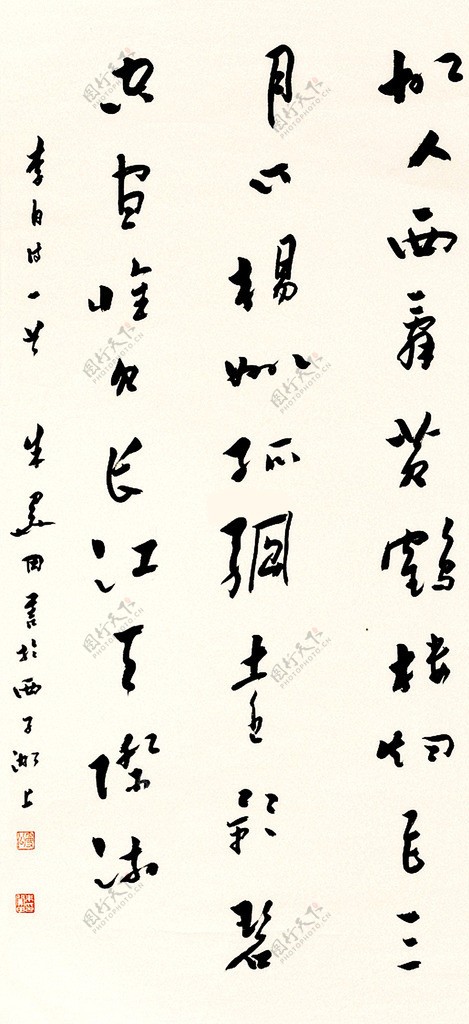 故人西辭黃鶴樓烟花三
月下揚州孤帆遠影碧
空盡唯見長江天際流
李白詩一首 朱關田書於西子湖上
图行天下 PHOTOPHOTO.CN